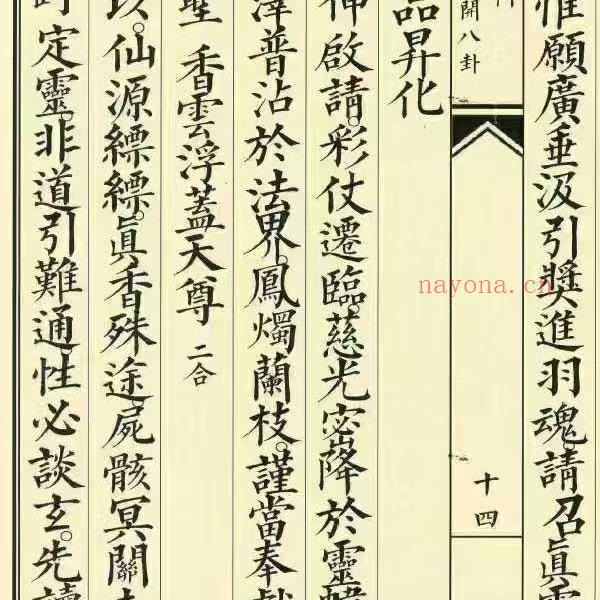 惟願廣垂汲引獎進羽魂請召眞靈
開八卦
十四
品昇化
伸啟請彩仗遷臨慈光密降於靈幃
澤普沾於法界鳳燭蘭枝謹當奉獻
聖 香雲浮蓋天尊 二合
仙源縹縹眞香殊途屍骸冥關
定靈非道引難通性必談玄先讀
nayona.cn